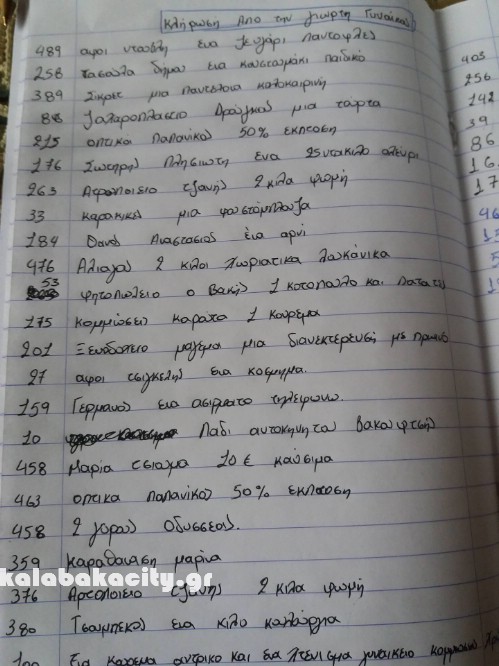 Κλήρωση Απο την γιωρτη Γυναίκας
489 αφοι ντασλη ενα ζευγάρι παντοφλες
258 τασουλα δημου ενα κουστουμάκι παιδικό
389 Σικρετ μια παντελονα καλοκαιρινή
88 Ζαχαροπλαστειο μια τούρτα
215 οπτικα παπανίκος 50% εκπτοση
176 Σωτηρης Πλησιωτη ενα 25ντακιλο αλευρι
263 Αρτοποιειο τζανης 2 κιλα ψωμή
33 καρακικες μια φουστομπλουζα
184 Θανος Αναστασιος ένα αρνί
476 Αλιαγας 2 κιλοι Χωριατικα λουκάνικα
53 ψητοπωλειο ο Βακης 1 κοτοπουλο και πατατες
175 κομμώσεις καρατα 1 κουρεμα
201 Ξενοδοπειο μαγεμα μια διανεκτερευσή με πρωινό
27 αφοι τσιγκελης ενα κοσμημα.
159 Γερμανος ενα ασιρματο τηλεφωνο.
10 Λαδι αυτοκηνητου Βακουφτσης
458 Μαρια τσιαμα 20 € καύσιμα
463 οπτικα παπανικος 50% εκπτοση
458 2 γύρους Οδυσσέας.
359 Καραθαναση μαρινα
376 Αρτοποιειο τζανης 2 κιλα ψωμή
380 Τσαμπεκος ενα κιλο
100 Ενα κουρεμα αντρικο και ενα χτενισμα γυναικειο
403
256
142
39
86
16
17
46
kalabakacity.gr